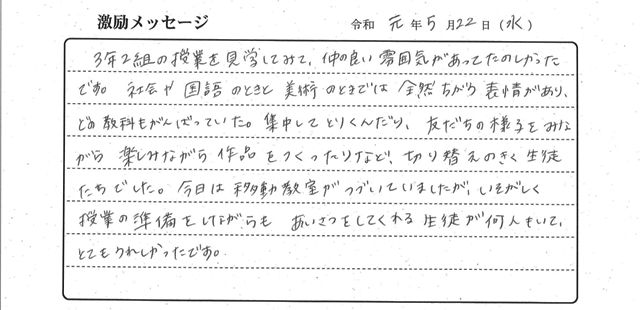 激励メッセージ 令和 元 年 5 月 22 日 (水)
3年2組の授業を見学してみて、仲の良い雰囲気があってたのしかった
です。社会や国語のときと美術のときでは全然ちがう表情があり、
どの教科もがんばっていた。集中してとりくんだり、友だちの様子をみな
がら楽しみながら作品をつくったりなど、切り替えのきく生徒
たちでした。今日は移動教室がつづいていましたが、いそがしく
授業の準備をしながらも あいさつをしてくれる生徒が何人もいて、
とてもうれしかったです。